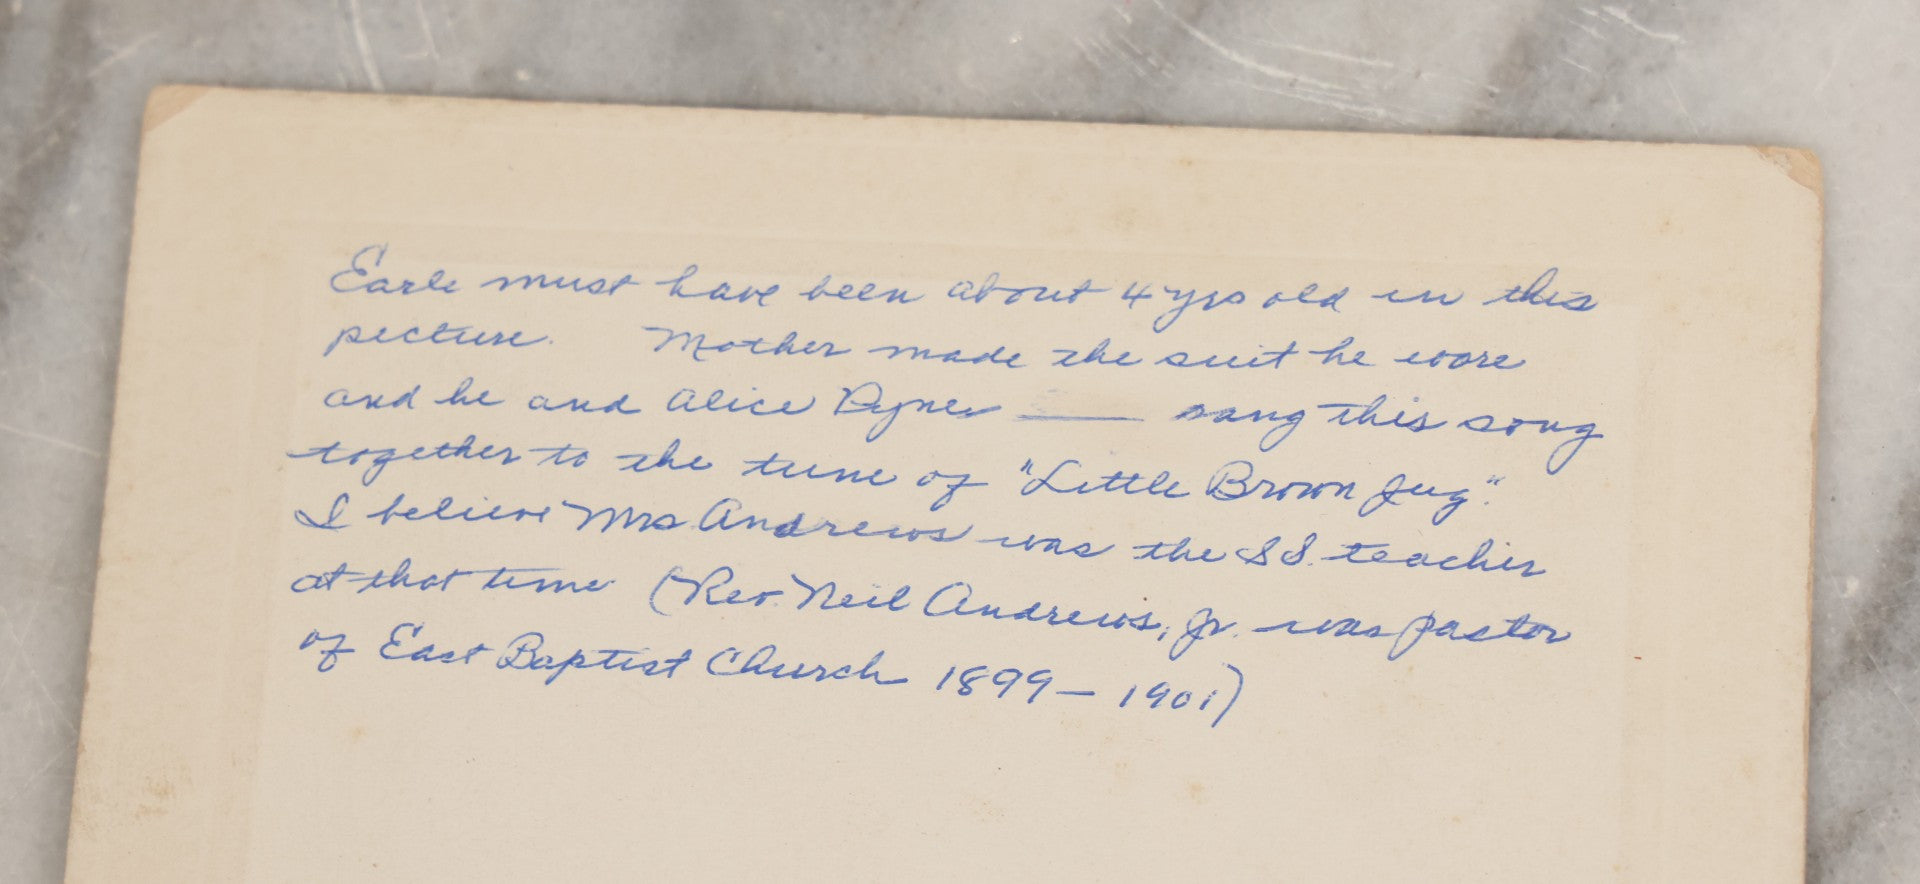 Earle must have been about 4 yrs old in this
picture. Mother made the suit he wore
and he and Alice ____ sang this song
together to the tune of "Little Brown Jug".
I believe Mrs Andrews was the S S. teacher
at that time (Rev. Neil Andrews, Jr. was pastor
of East Baptist Church 1899 – 1901)